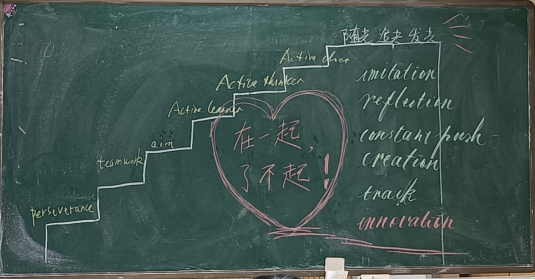 Active doer
Active thinker
Active learner
aim
teamwork
perseverance
在一起，
了不起！
imitation
reflection
constant push-
creation
track
innovation